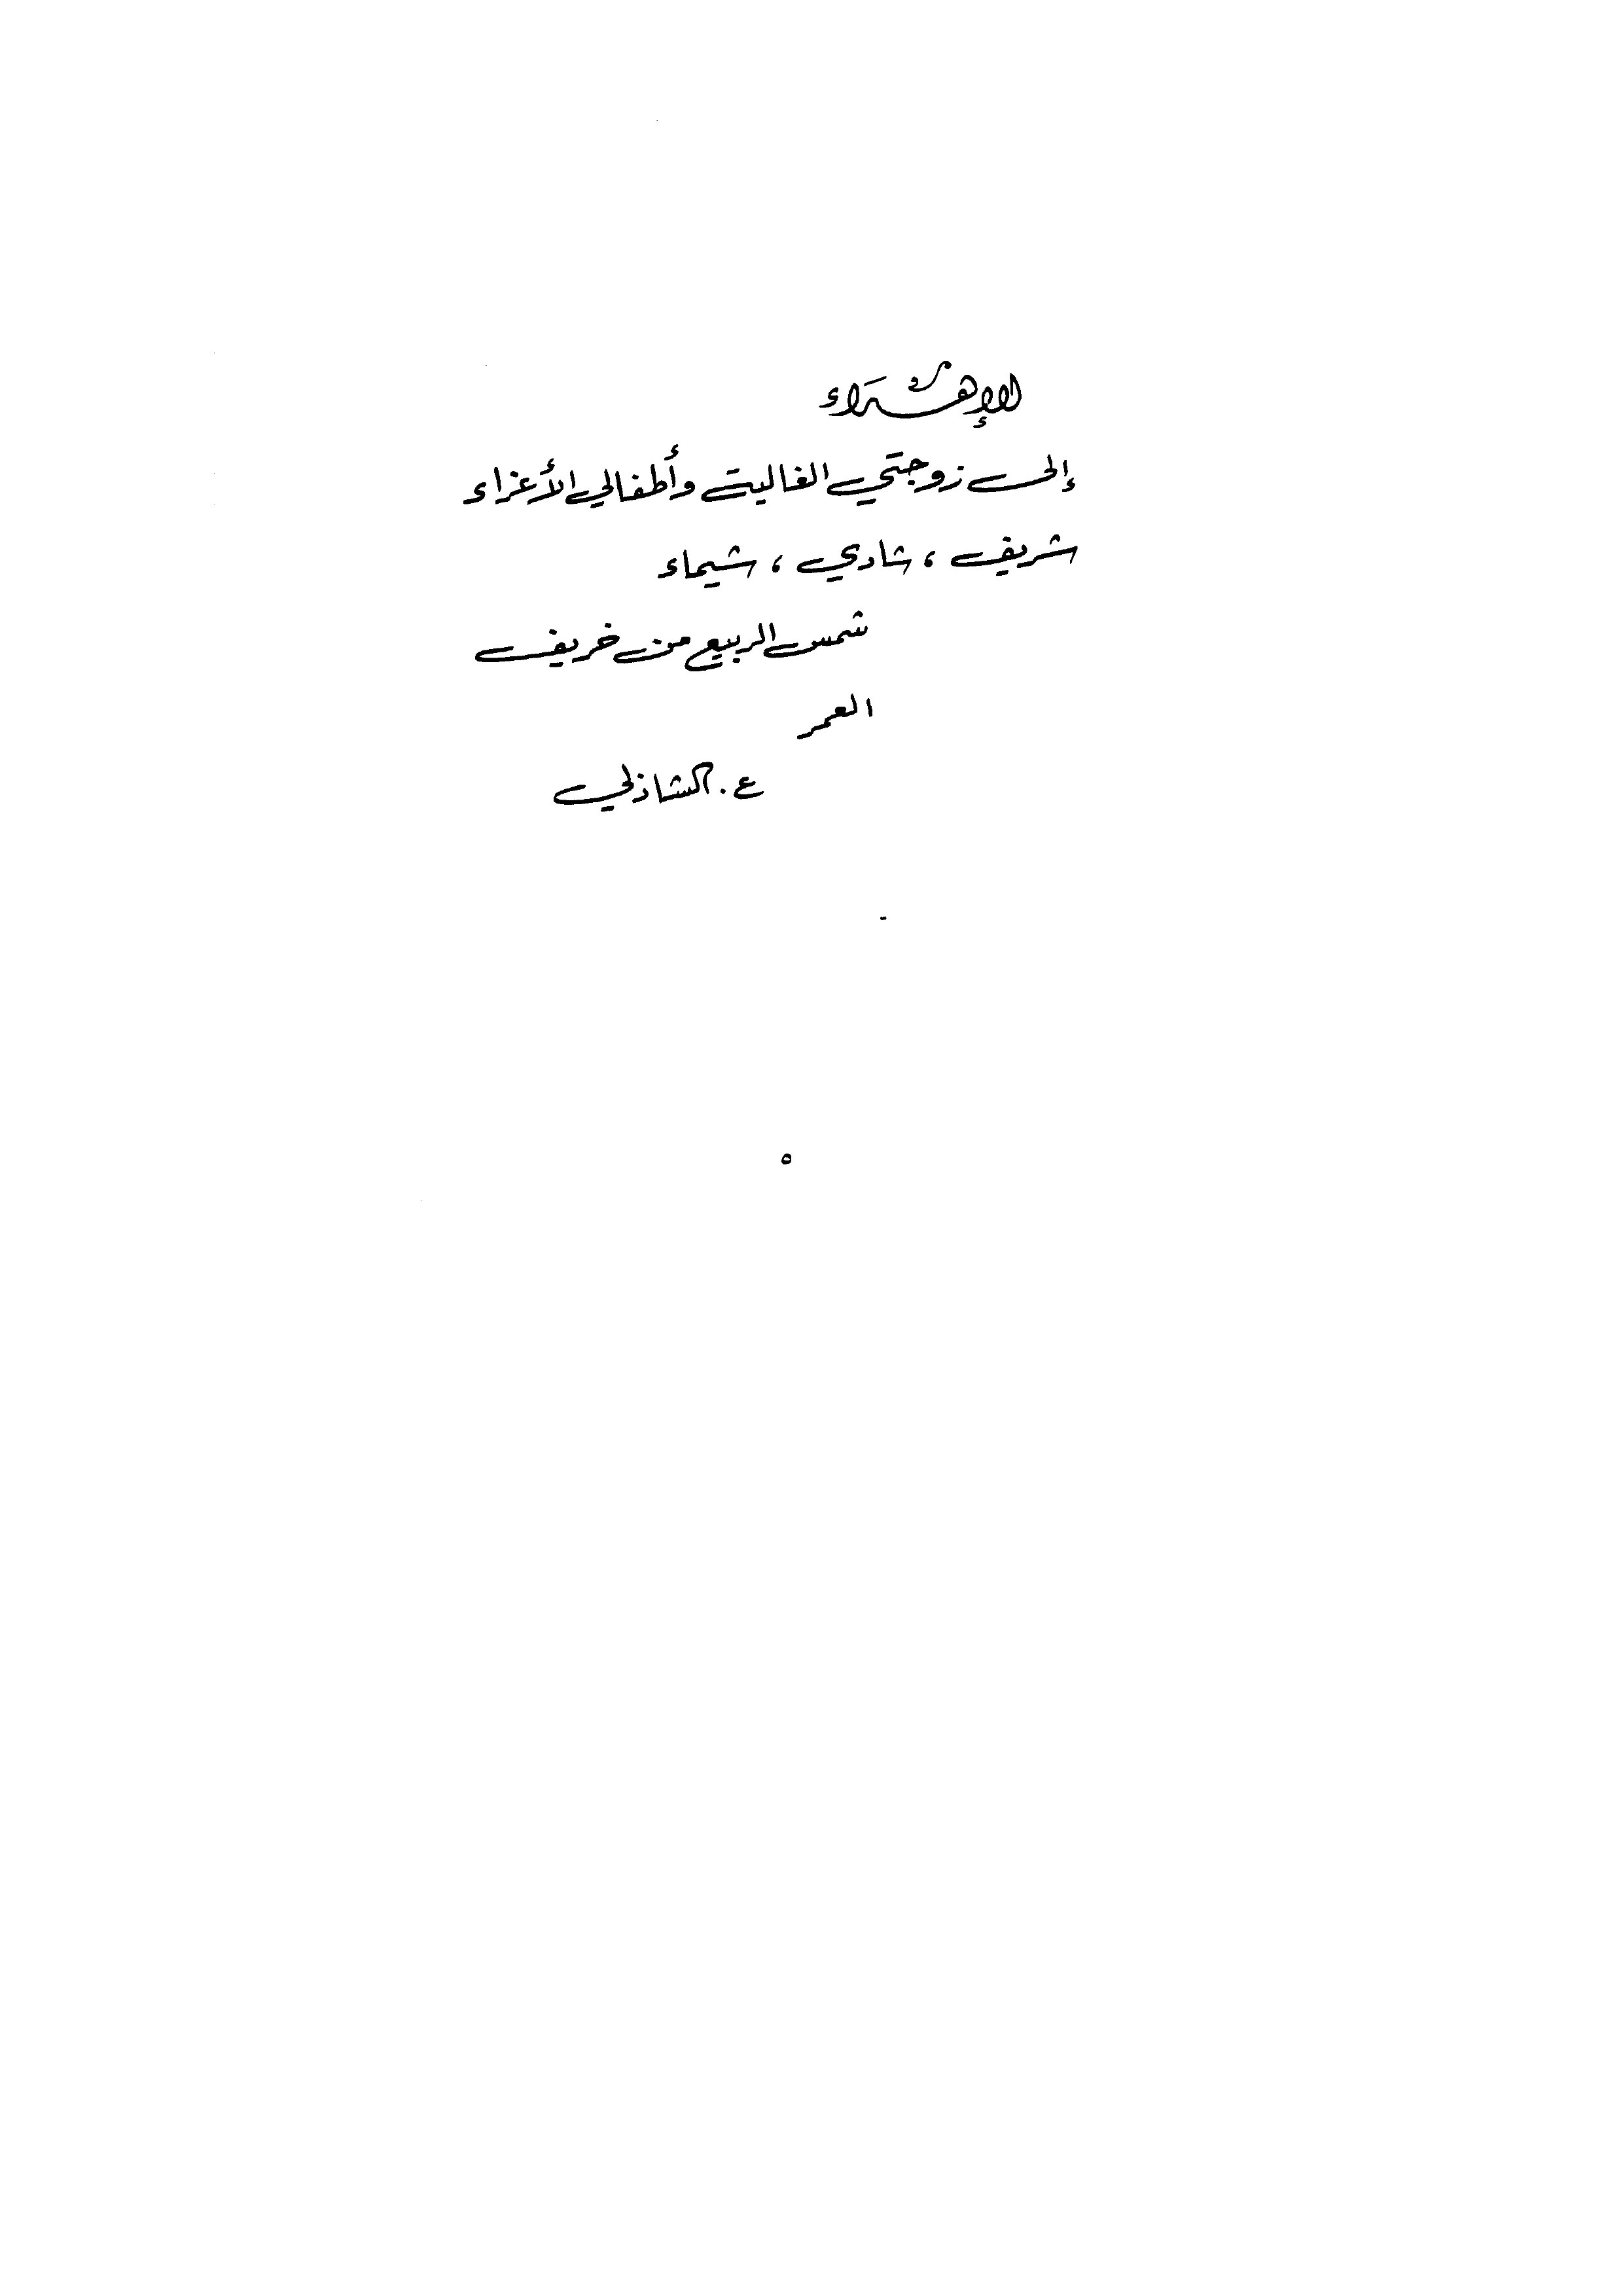 الإهداء
إلى زوجتي الغالية وأطفالي الأعزاء
شريف ، شادي ، شيماء
شمس الربيع من خريف
العمر
ع . الشاذلي
٥